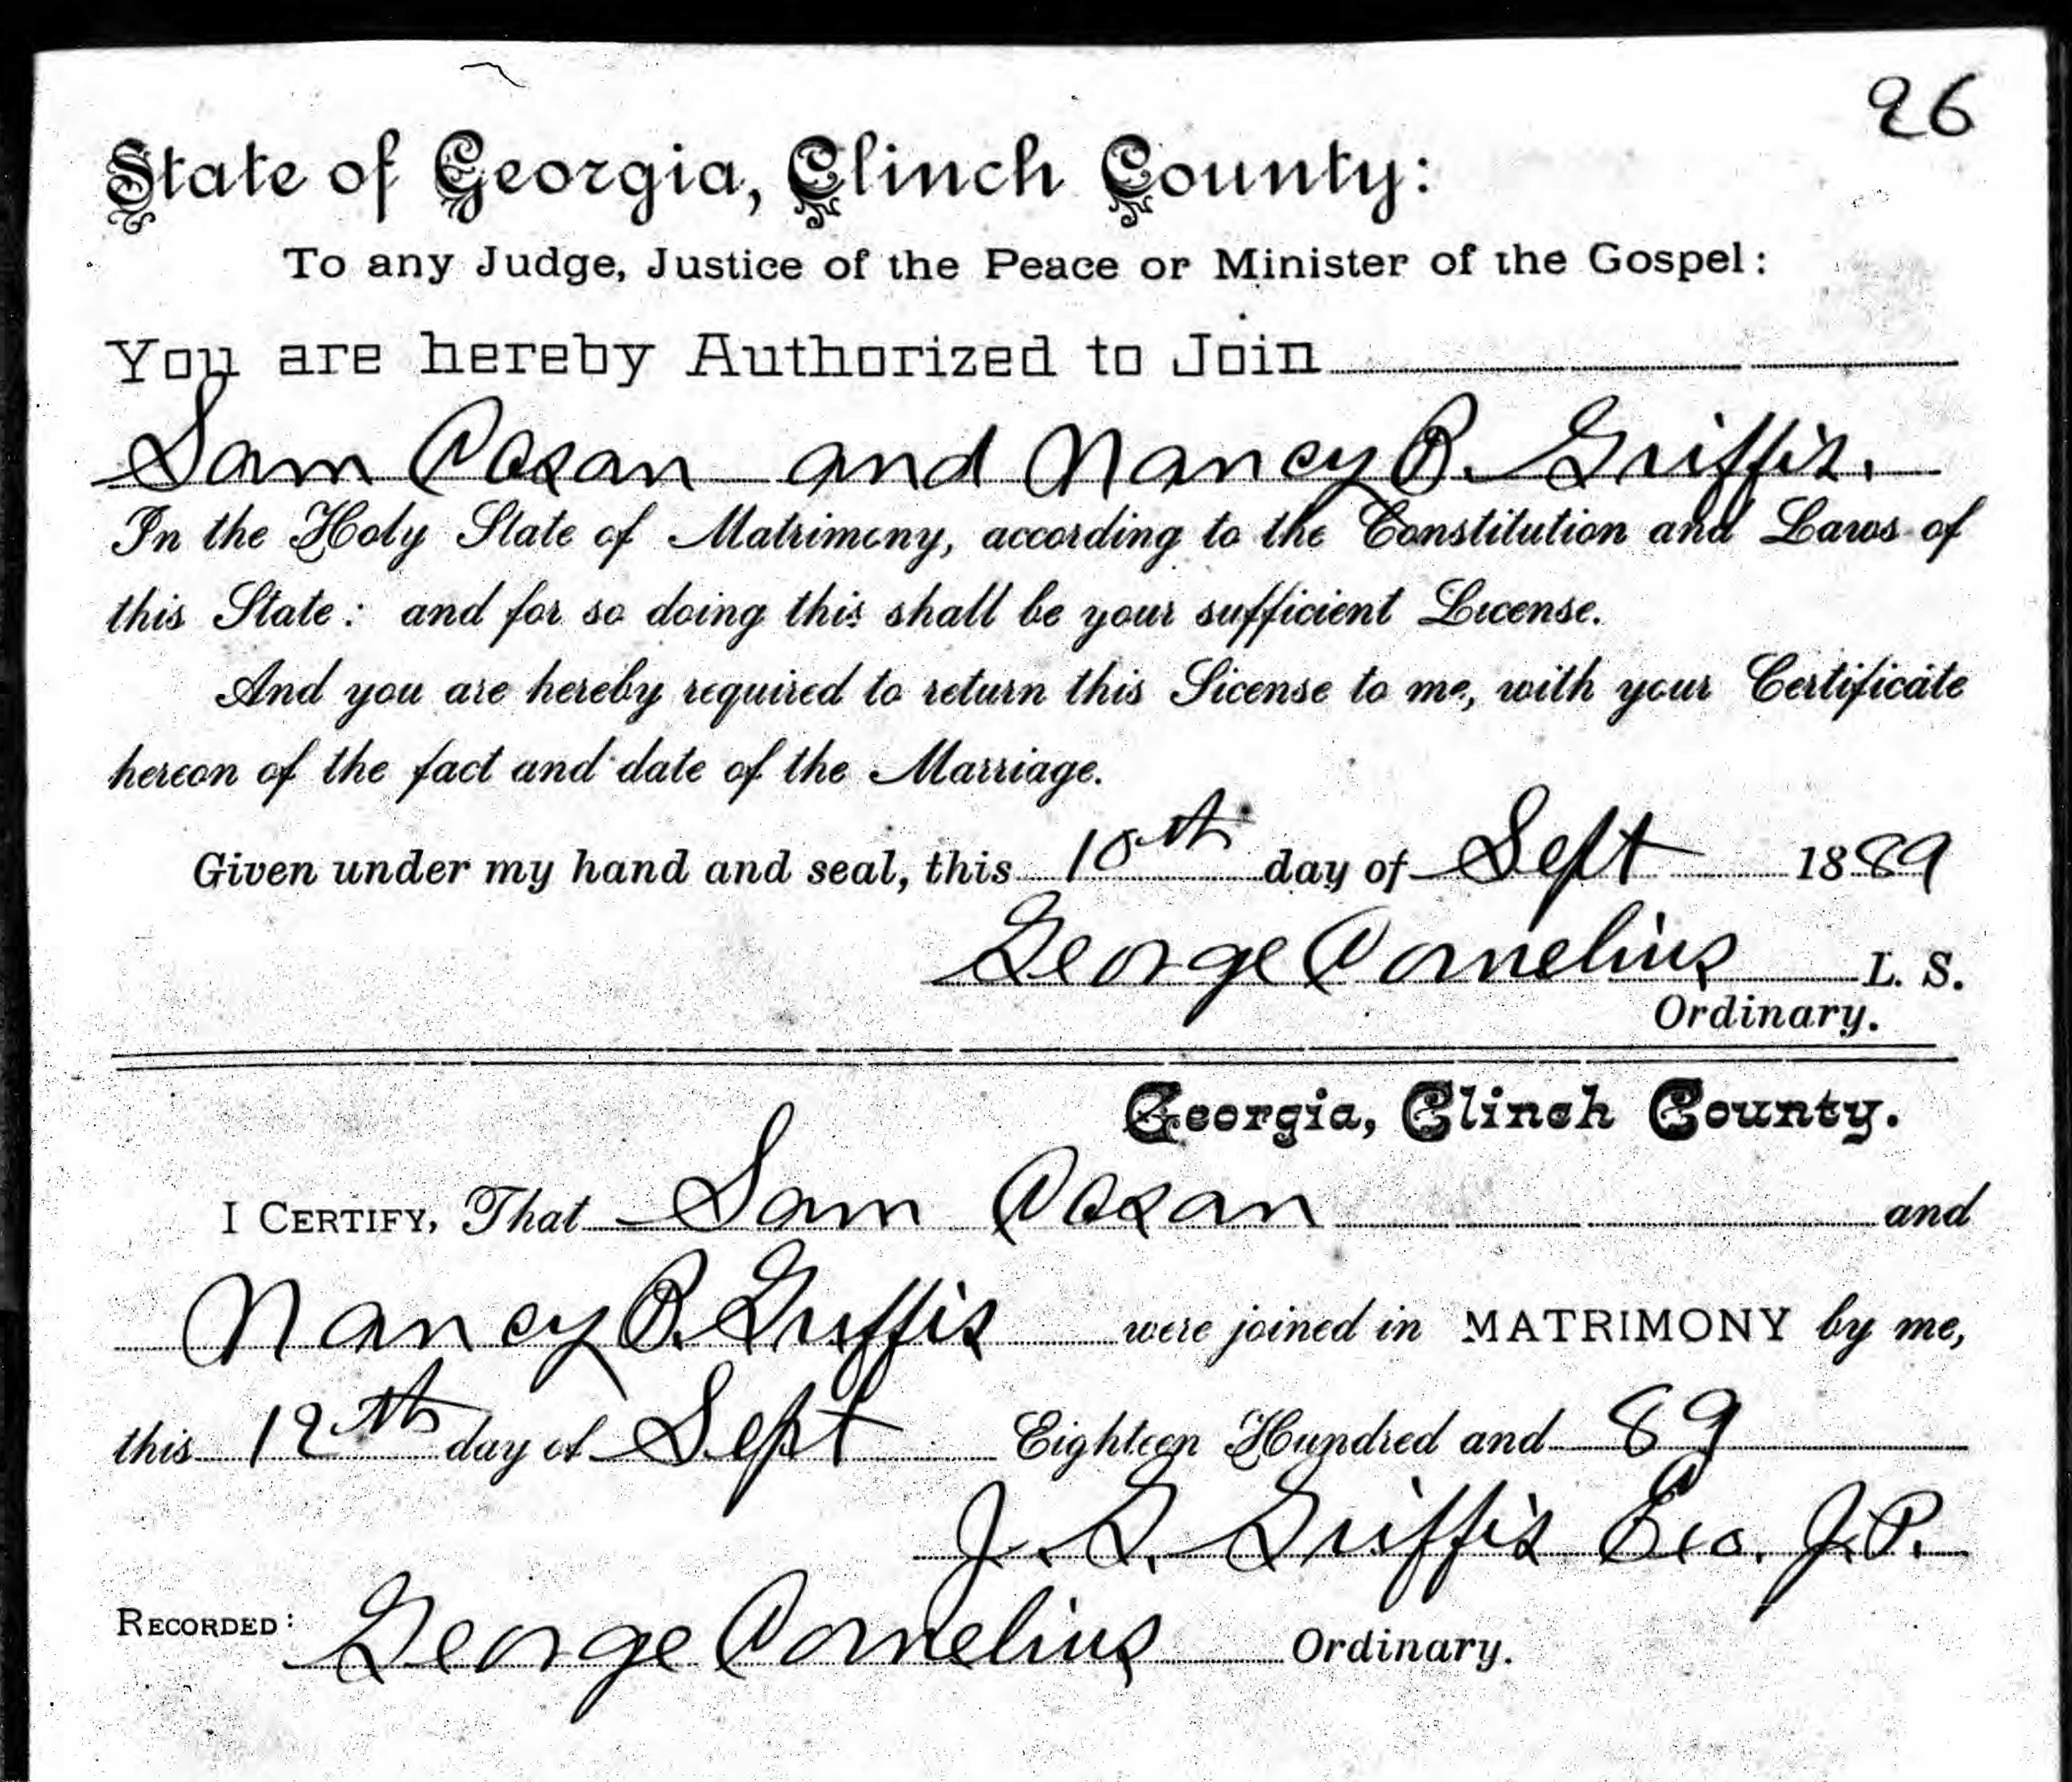 26
State of Georgia, Clinch County:
To any Judge, Justice of the Peace or Minister of the Gospel:
You are hereby Authorized to Join
Sam and Nancy R. Griffis.
In the Holy State of Matrimony, according to the Constitution and Laws of
this State: and for so doing this shall be your sufficient License.
And you are hereby required to return this License to me, with your Certificate
hereon of the fact and date of the Marriage.
Given under my hand and seal, this 10th day of Sept 1889
George Cornelius L. S.
Ordinary.
Georgia, Clinch County.
I CERTIFY, That Sam and
Nancy R. Griffis were joined in MATRIMONY by me,
this 12th day of Sept Eighteen Hundred and 89
J. S. Griffis J.P.
RECORDED: George Cornelius Ordinary.